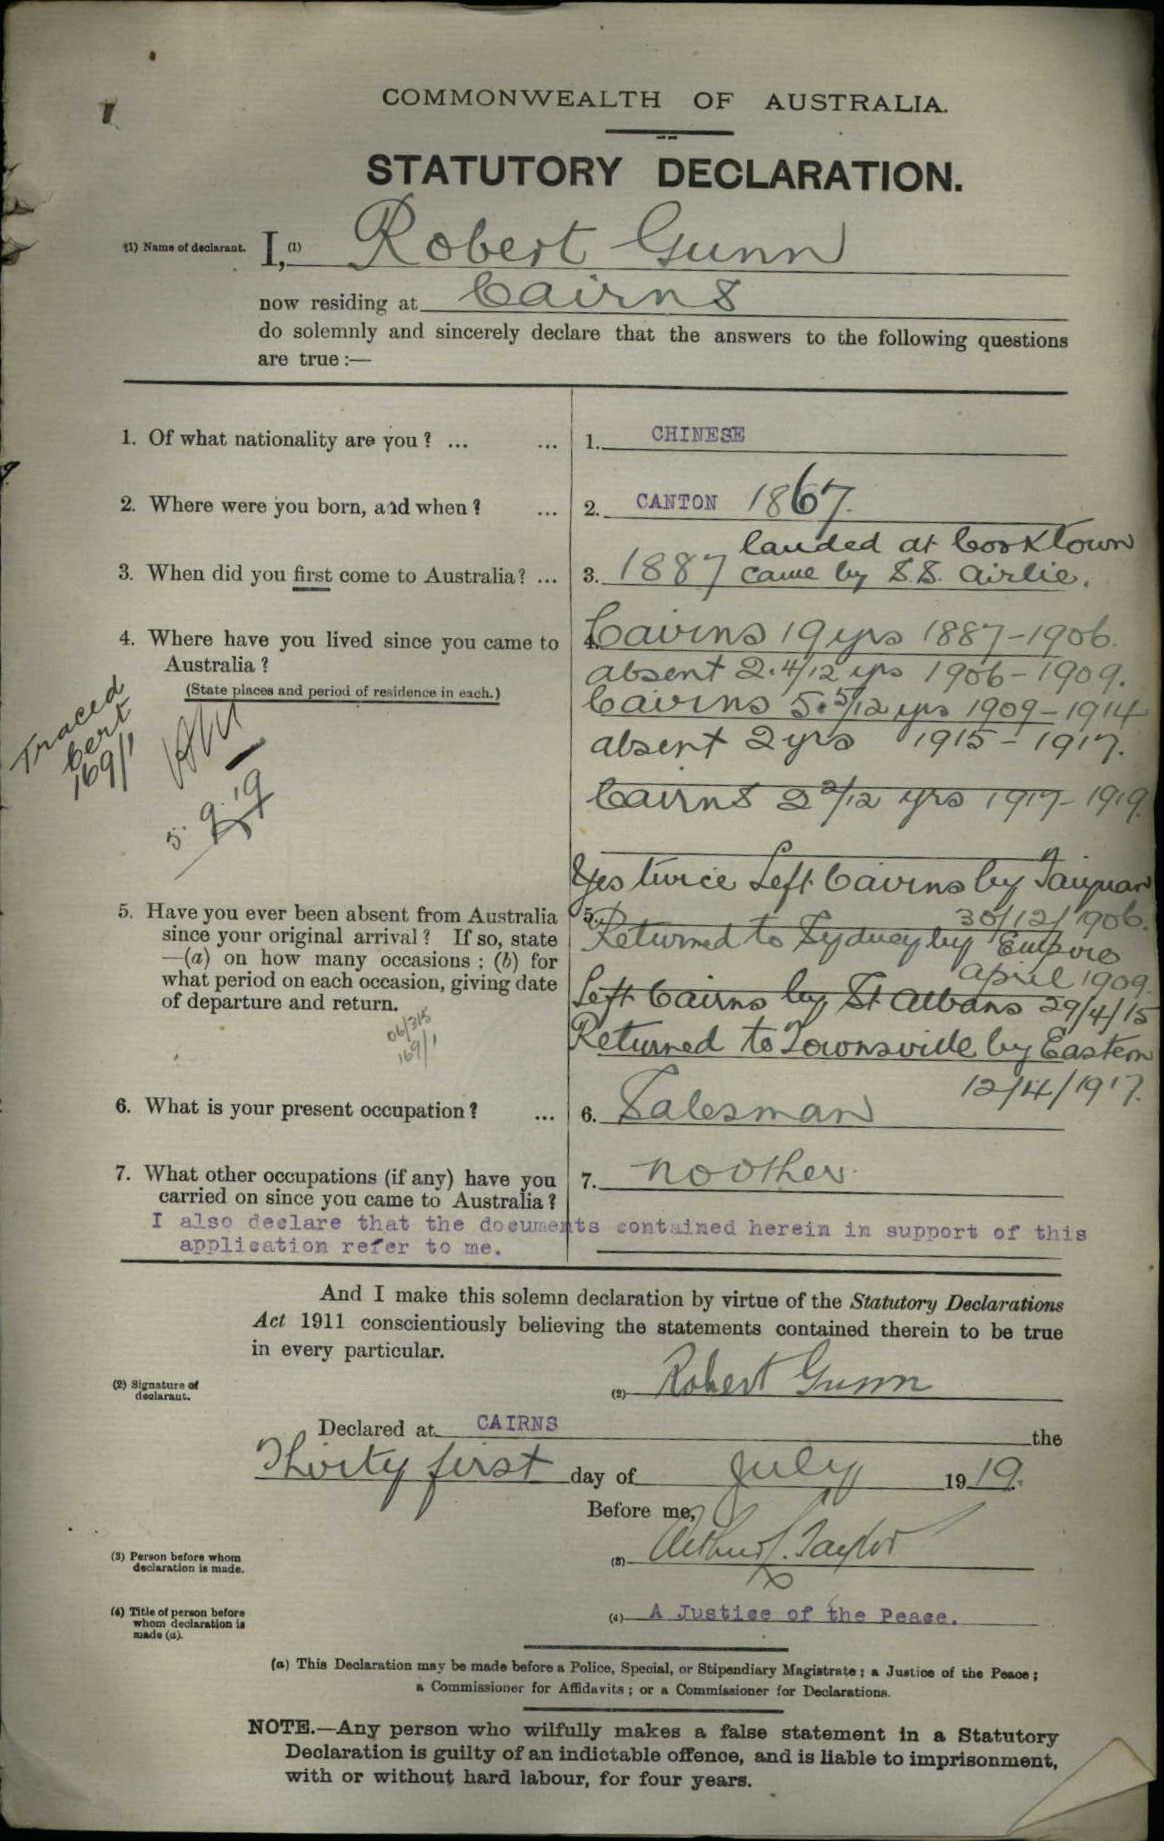 COMMONWEALTH OF AUSTRALIA.
STATUTORY DECLARATION.
(1) Name of declarant. I, (1) Robert Gunn
now residing at Cairns
do solemnly and sincerely declare that the answers to the following questions
are true :—
1. Of what nationality are you ? ... ... 1. CHINESE
2. Where were you born, and when ? ... 2. CANTON 1867.
landed at Cooktown
3. When did you first come to Australia ? ... 3. 1887 came by S.S. Airlie.
4. Where have you lived since you came to 4. Cairns 19 yrs 1887-1906.
Australia ? absent 2.4/12 yrs 1906-1909.
(State places and period of residence in each.) Cairns 5.5/12 yrs 1909-1914
absent 2 yrs 1915-1917.
Cairns 2 2/12 yrs 1917-1919.
Traced
Cert
169/1
5.9.19
Yes twice Left Cairns by Taiyuan
5. Have you ever been absent from Australia 5. 30/12/1906.
since your original arrival ? If so, state Returned to Sydney by Empire
—(a) on how many occasions ; (b) for April 1909.
what period on each occasion, giving date Left Cairns by St Albans 29/4/15
of departure and return. Returned to Townsville by Eastern
06/315
169/1
12/4/1917.
6. What is your present occupation ? ... 6. Salesman
7. What other occupations (if any) have you 7. no other.
carried on since you came to Australia ?
I also declare that the documents contained herein in support of this
application refer to me.
And I make this solemn declaration by virtue of the Statutory Declarations
Act 1911 conscientiously believing the statements contained therein to be true
in every particular.
(2) Signature of
declarant. (2) Robert Gunn
Declared at CAIRNS the
Thirty first day of July 1919.
Before me,
(3) Person before whom
declaration is made. (3) Arthur J. Taylor
(4) Title of person before
whom declaration is
made (a). (4) A Justice of the Peace.
(a) This Declaration may be made before a Police, Special, or Stipendiary Magistrate ; a Justice of the Peace ;
a Commissioner for Affidavits ; or a Commissioner for Declarations.
NOTE.—Any person who wilfully makes a false statement in a Statutory
Declaration is guilty of an indictable offence, and is liable to imprisonment,
with or without hard labour, for four years.